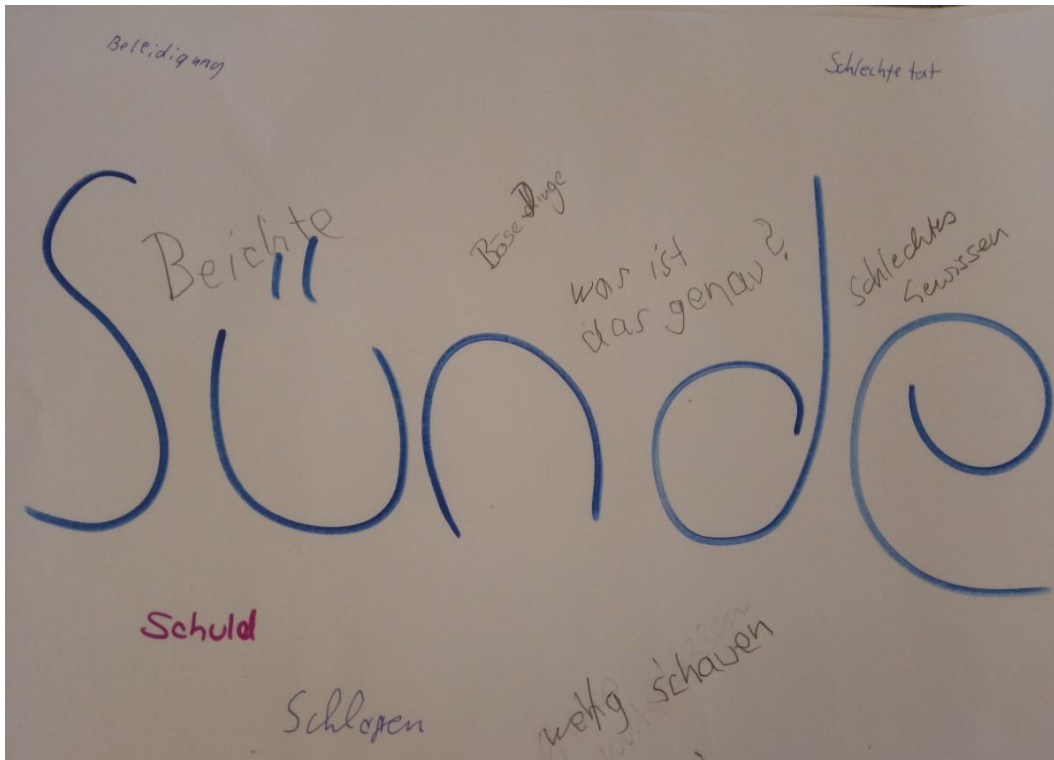 Beleidigung
Schlechte tat
Beichte
Böse Dinge
was ist
das genau?
schlechtes
Gewissen
Sünde
Schuld
Schlagen
schauen